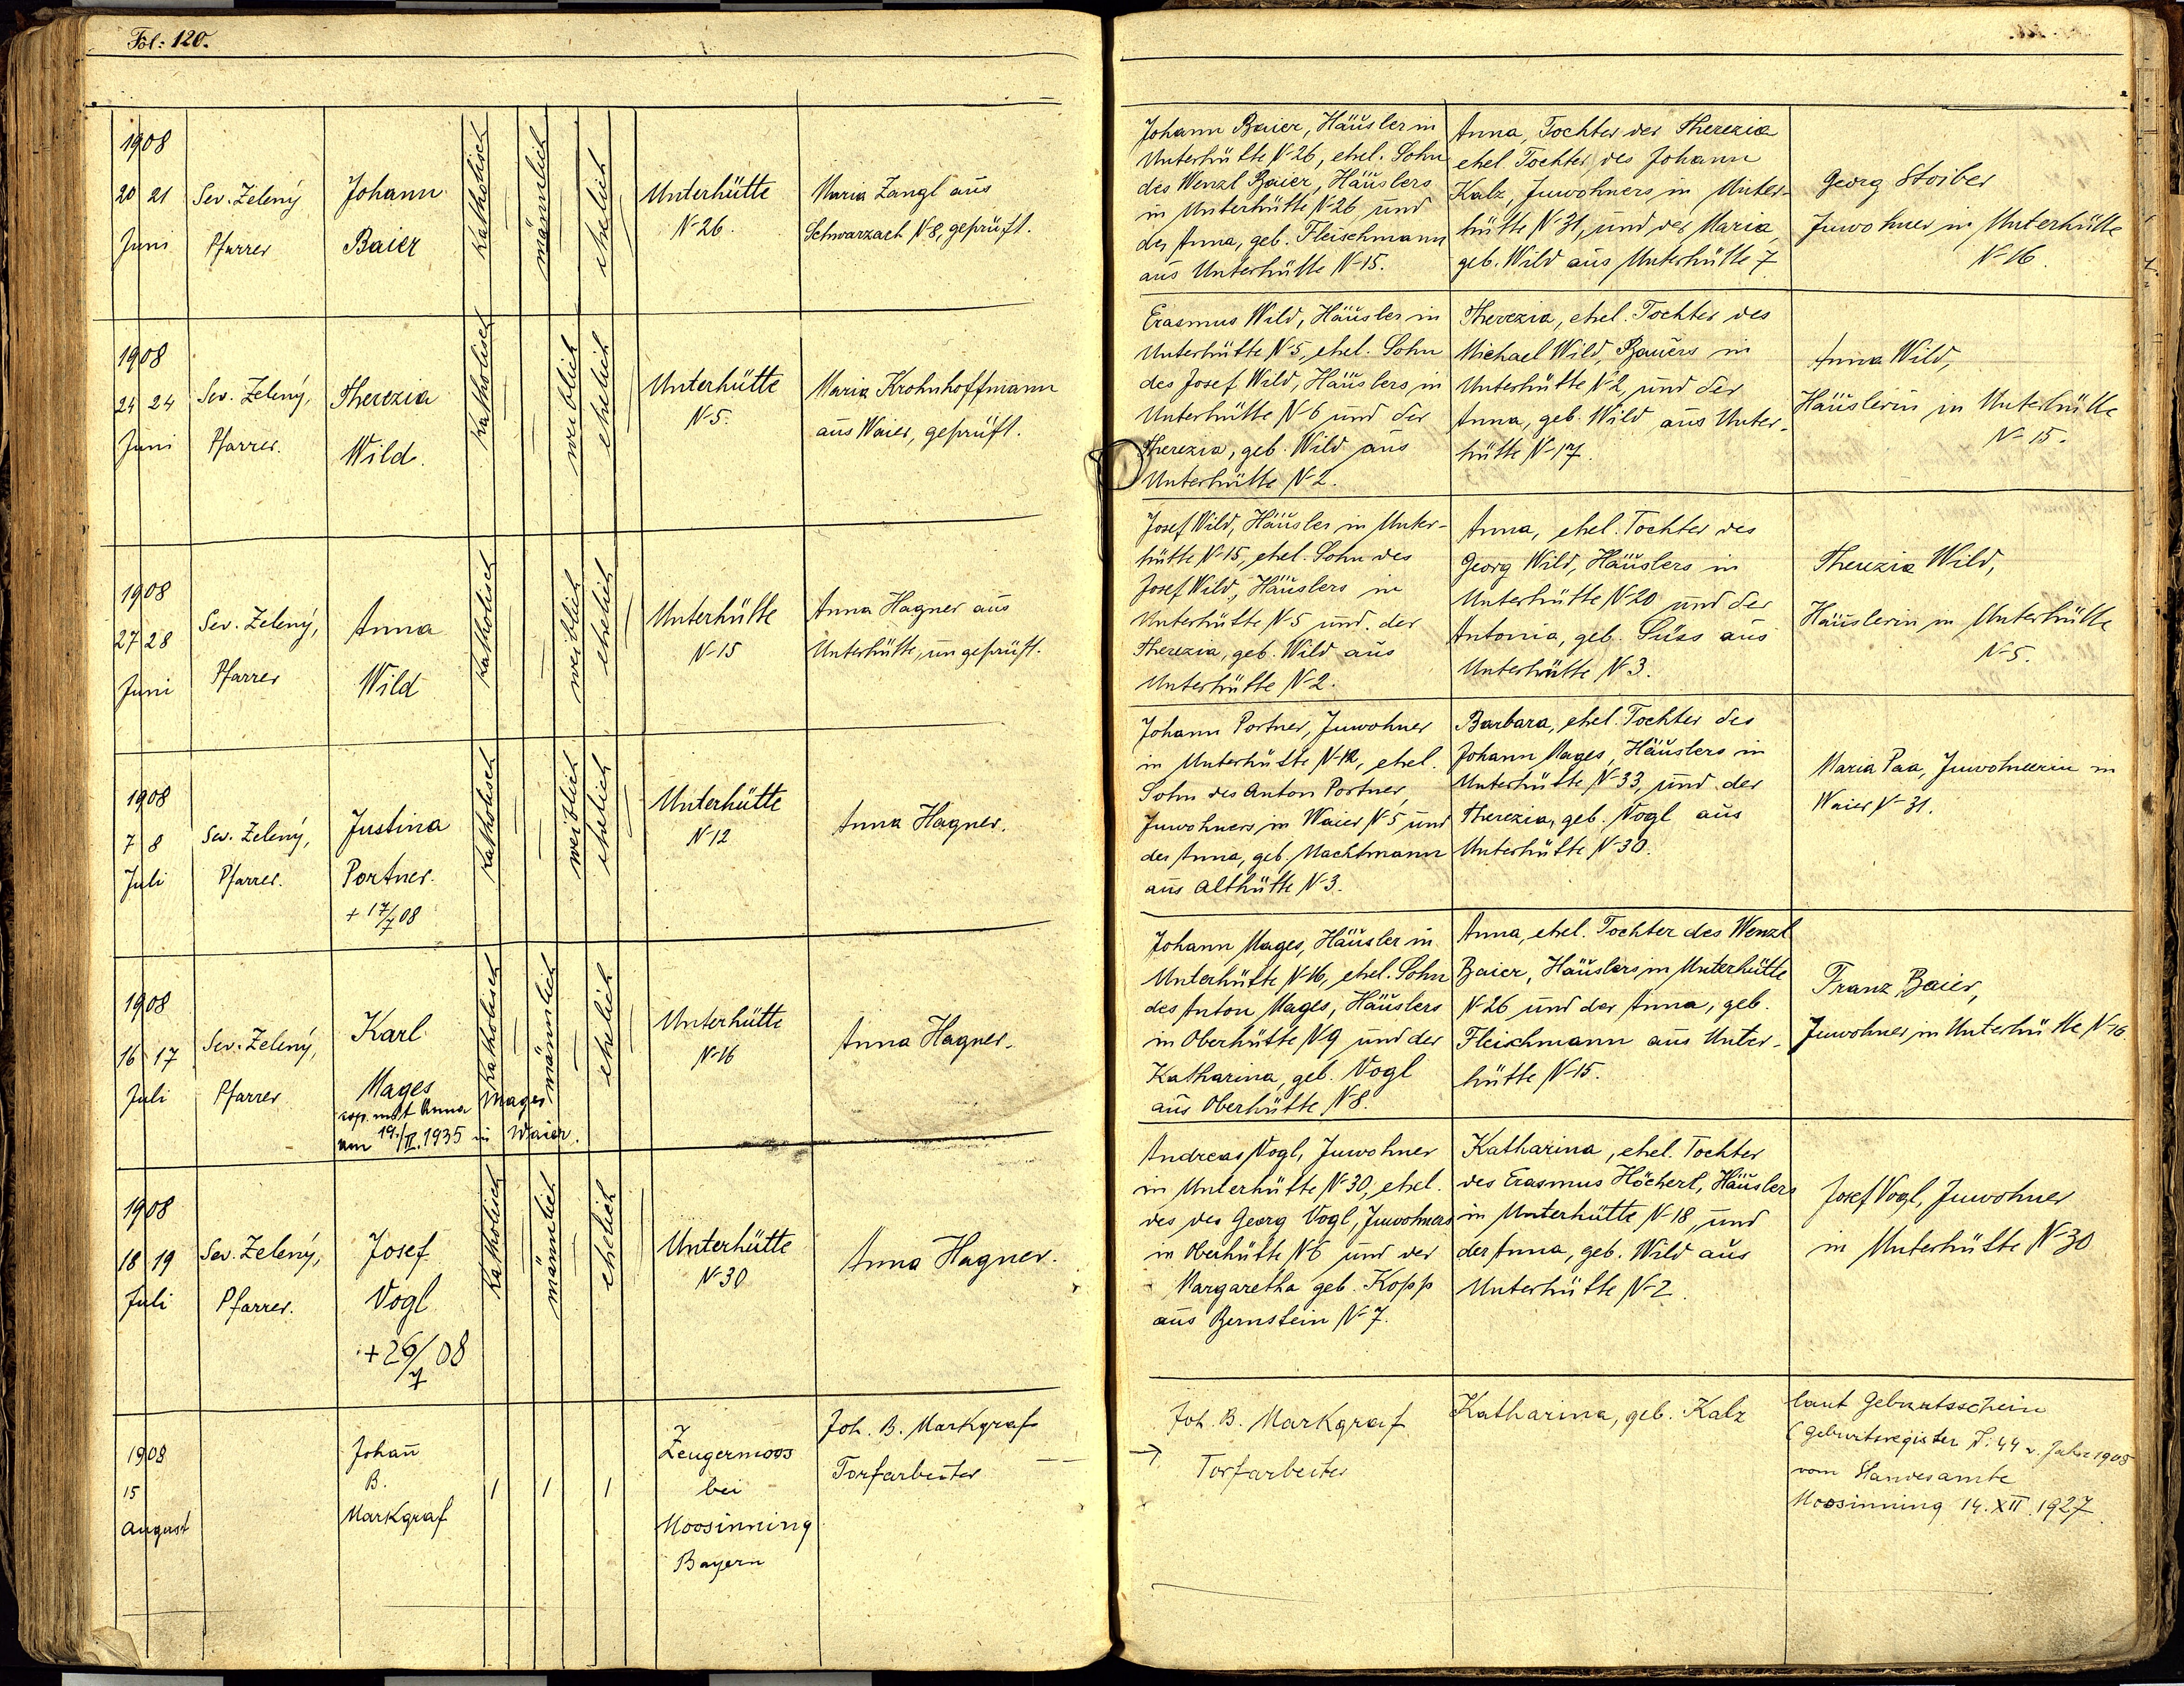 Fol: 120.
1908
20 21
Juni
Sev. Zelený
Pfarrer
Johann
Baier
Katholisch
männlich
ehelich
Unterhütte
N-26.
Maria Zangl aus
Schwarzach N-8, geprüft.
Johann Baier, Häusler in
Unterhütte N-26, ehel. Sohn
des Wenzl Baier, Häuslers
in Unterhütte N-26 und
der Anna, geb. Fleischmann
aus Unterhütte N-15.
Anna, Tochter der Therezia
ehel Tochter des Johann
Kalz, Juwohners in Unter-
hütte N-31, und der Maria,
geb. Wild aus Unterhütte 7
Georg Stoiber
Juwohner in Unterhütte
N-16.
1908
24 24
Juni
Sev. Zelený,
Pfarrer.
Therezia
Wild.
Katholisch
weiblich
ehelich
Unterhütte
N-5.
Maria Krohnhoffmann
aus Waier, geprüft.
Erasmus Wild, Häusler in
Unterhütte N-5, ehel. Sohn
des Josef Wild, Häuslers in
Unterhütte N-6 und der
Therezia, geb. Wild aus
Unterhütte N-2.
Therezia, ehel. Tochter des
Michael Wild, Bauers in
Unterhütte N-2, und der
Anna, geb. Wild aus Unter-
hütte N-17.
Anna Wild,
Häuslerin in Unterhütte
N-15.
1908
27 28
Juni
Sev. Zelený,
Pfarrer
Anna
Wild
Katholisch
weiblich
ehelich
Unterhütte
N-15
Anna Hagner aus
Unterhütte, ungeprüft.
Josef Wild, Häusler in Unter-
hütte N-15, ehel. Sohn des
Josef Wild, Häuslers in
Unterhütte N-5 und der
Therezia, geb. Wild aus
Unterhütte N-2.
Anna, ehel. Tochter des
Georg Wild, Häuslers in
Unterhütte N-20 und der
Antonia, geb. Süss aus
Unterhütte N-3.
Therezia Wild,
Häuslerin in Unterhütte
N-5.
1908
7 8
Juli
Sev. Zelený,
Pfarrer.
Justina
Portner.
+ 17/7 08
Katholisch
weiblich
ehelich
Unterhütte
N-12
Anna Hagner.
Johann Portner, Juwohner
in Unterhütte N-12, ehel.
Sohn des Anton Portner,
Juwohners in Waier N-5 und
der Anna, geb. Machtmann
aus Althütte N-3.
Barbara, ehel. Tochter des
Johann Mages, Häuslers in
Unterhütte N-33, und der
Therezia, geb. Vogl aus
Unterhütte N-30.
Maria Paa, Juwohnerin in
Waier N-31.
1908
16 17
Juli
Sev. Zelený,
Pfarrer
Karl
Mages
cop. mit Anna Mages
am 19./II. 1935 in Waier.
Katholisch
männlich
ehelich
Unterhütte
N-16
Anna Hagner.
Johann Mages, Häusler in
Unterhütte N-16, ehel. Sohn
des Anton Mages, Häuslers
in Oberhütte N-9 und der
Katharina, geb. Vogl
aus Oberhütte N-8.
Anna, ehel. Tochter des Wenzl
Baier, Häuslers in Unterhütte
N-26 und der Anna, geb.
Fleischmann aus Unter-
hütte N-15.
Franz Baier,
Juwohner in Unterhütte N-16
1908
18 19
Juli
Sev. Zelený,
Pfarrer.
Josef
Vogl
+ 26/7 08
Katholisch
männlich
ehelich
Unterhütte
N-30
Anna Hagner.
Andreas Vogl, Juwohner
in Unterhütte N-30, ehel.
des des Georg Vogl, Juwohners
in Oberhütte N-6 und der
Margaretha geb. Kopp
aus Bernstein N-7.
Katharina, ehel. Tochter
des Erasmus Höcherl, Häuslers
in Unterhütte N-18, und
der Anna, geb. Wild aus
Unterhütte N-2.
Josef Vogl, Juwohner
in Unterhütte N-30
1908
15
August
Johan̄
B.
Markgraf
Zengermoos
bei
Moosinning
Bayern
Joh. B. Markgraf
Torfarbeiter
Joh. B. Markgraf
Torfarbeiter
Katharina, geb. Kalz
laut Geburtsschein
(Geburtsregister N: 44 v. Jahre 1908
vom Standesamte
Moosinning 14. XII. 1927.